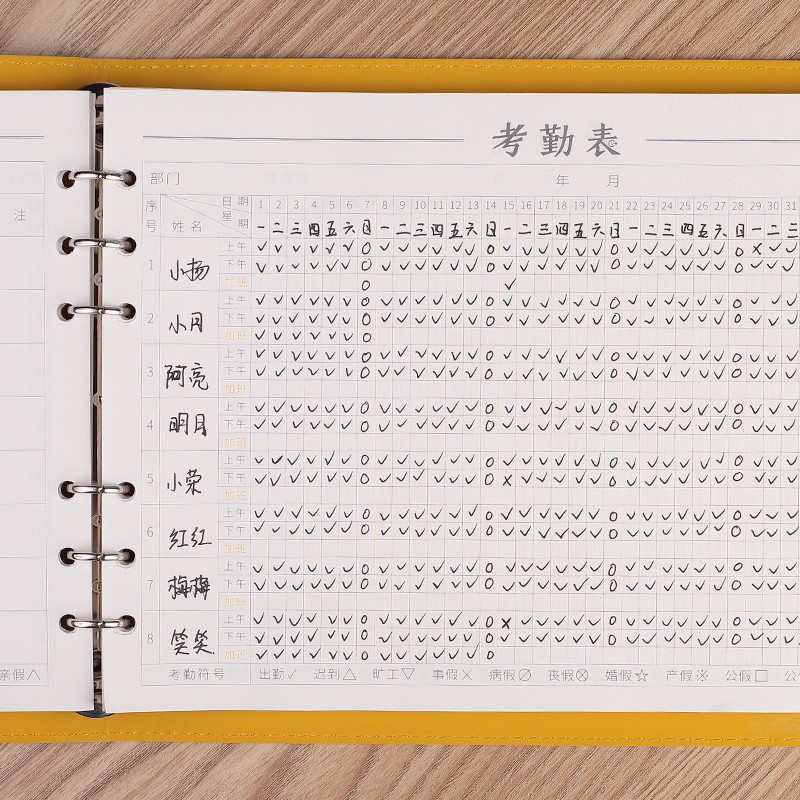 考勤表
部门 年 月
注
序号 姓名 日期 1 2 3 4 5 6 7 8 9 10 11 12 13 14 15 16 17 18 19 20 21 22 23 24 25 26 27 28 29 30 31
星期 一 二 三 四 五 六 日 一 二 三 四 五 六 日 一 二 三 四 五 六 日 一 二 三 四 五 六 日 一 二 三
上午
1 小扬 下午
加班
上午
2 小月 下午
加班
上午
3 阿亮 下午
加班
上午
4 明月 下午
加班
上午
5 小荣 下午
加班
上午
6 红红 下午
加班
上午
7 梅梅 下午
加班
上午
8 笑笑 下午
加班
亲假∧
考勤符号 出勤✓ 迟到△ 旷工▽ 事假× 病假∅ 丧假⊗ 婚假☆ 产假※ 公假□